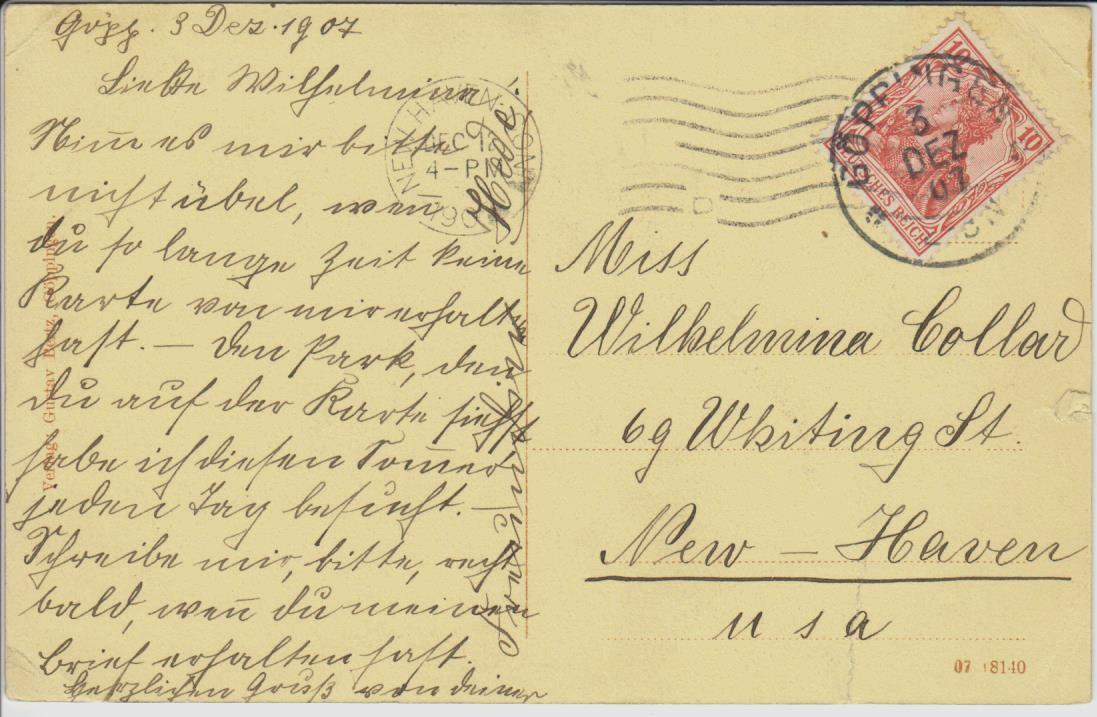 Göpp. 3 Dez. 1907
Liebste Wilhelmina!
Nim̄ es mir bitte
nicht übel, wen̄
du so lange Zeit keine
Karte von mir erhalten
hast. – Den Park, den
Du auf der Karte siehst,
habe ich diesen Som̄er
jeden Tag besucht. –
Schreibe mir, bitte, recht
bald, wen̄ du meinen
Brief erhalten hast.
Herzlichen Gruß von deiner
Freundin
Verlag Gustav Göpping
NEW HAVEN CONN.
DEC 12
4-P M
190
GÖPPINGEN
3
DEZ
07
10
10
DEUTSCHES REICH
Miss
Wilhelmina Collard
69 Whiting St.
New – Haven
U S A
07 18140